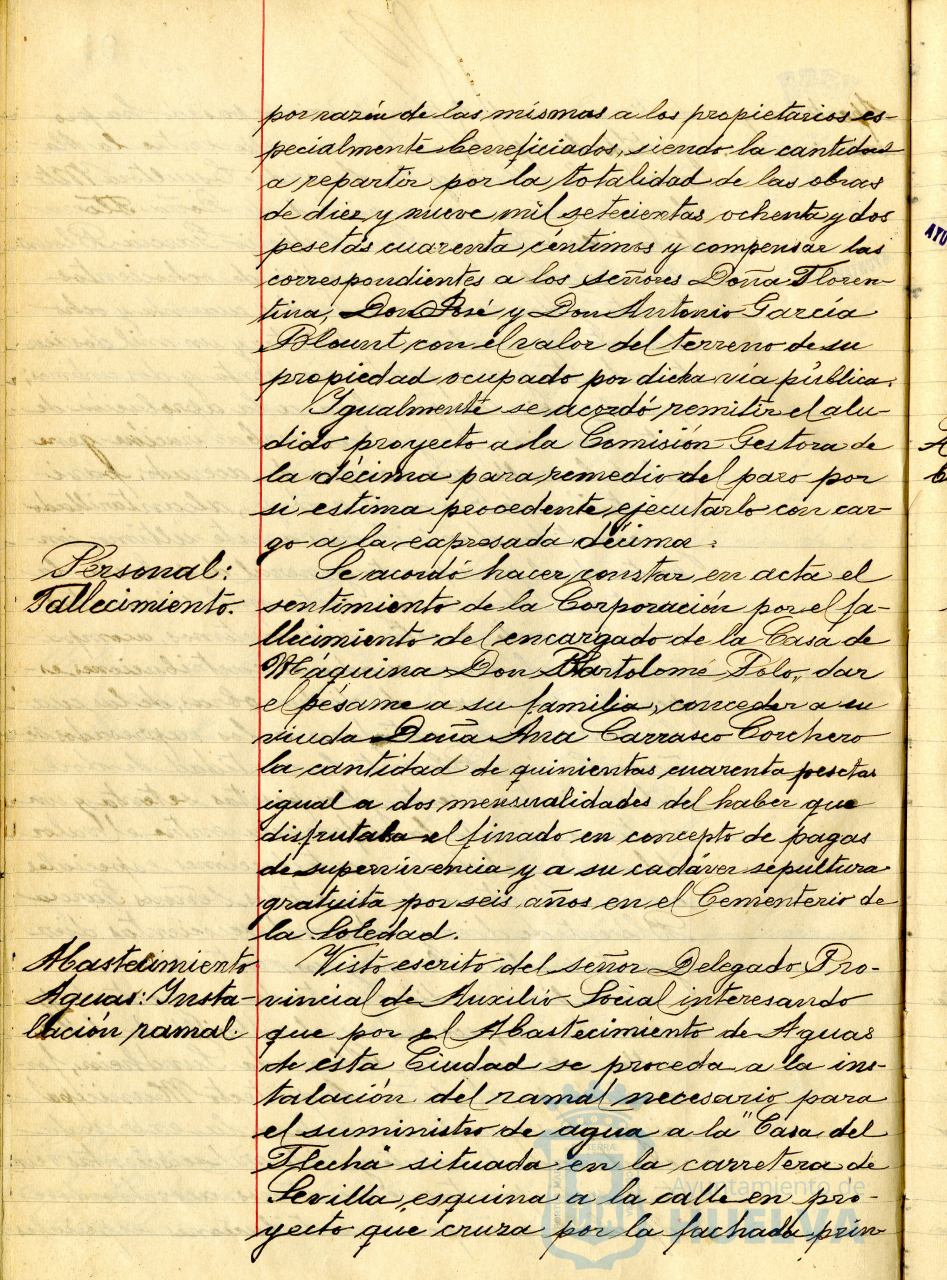 por razón de las mismas a los propietarios es-
pecialmente beneficiados, siendo la cantidad
a repartir por la totalidad de las obras
de diez y nueve mil setecientas ochenta y dos
pesetas cuarenta céntimos y compensar las
correspondientes a los señores Doña Floren-
tina, Don José y Don Antonio García
Blount con el valor del terreno de su
propiedad ocupado por dicha vía pública.
Igualmente se acordó remitir el alu-
dido proyecto a la Comisión Gestora de
la décima para remedio del paro por
si estima procedente ejecutarlo con car-
go a la expresada décima.
Personal:
Fallecimiento.
Se acordó hacer constar en acta el
sentimiento de la Corporación por el fa-
llecimiento del encargado de la Casa de
Maquina Don Bartolomé Polo, dar
el pésame a su familia, conceder a su
viuda Doña Ana Carrasco Corchero
la cantidad de quinientas cuarenta pesetas
igual a dos mensualidades del haber que
disfrutaba el finado en concepto de pagas
de supervivencia y a su cadáver sepultura
gratuita por seis años en el Cementerio de
la Soledad.
Abastecimiento
Aguas: Insta-
lación ramal.
Visto escrito del señor Delegado Pro-
vincial de Auxilio Social interesando
que por el Abastecimiento de Aguas
de esta Ciudad se proceda a la ins-
talación del ramal necesario para
el suministro de agua a la "Casa del
Flecha" situada en la carretera de
Sevilla, esquina a la calle en pro-
yecto que cruza por la fachada prin-
Ayuntamiento de
HUELVA